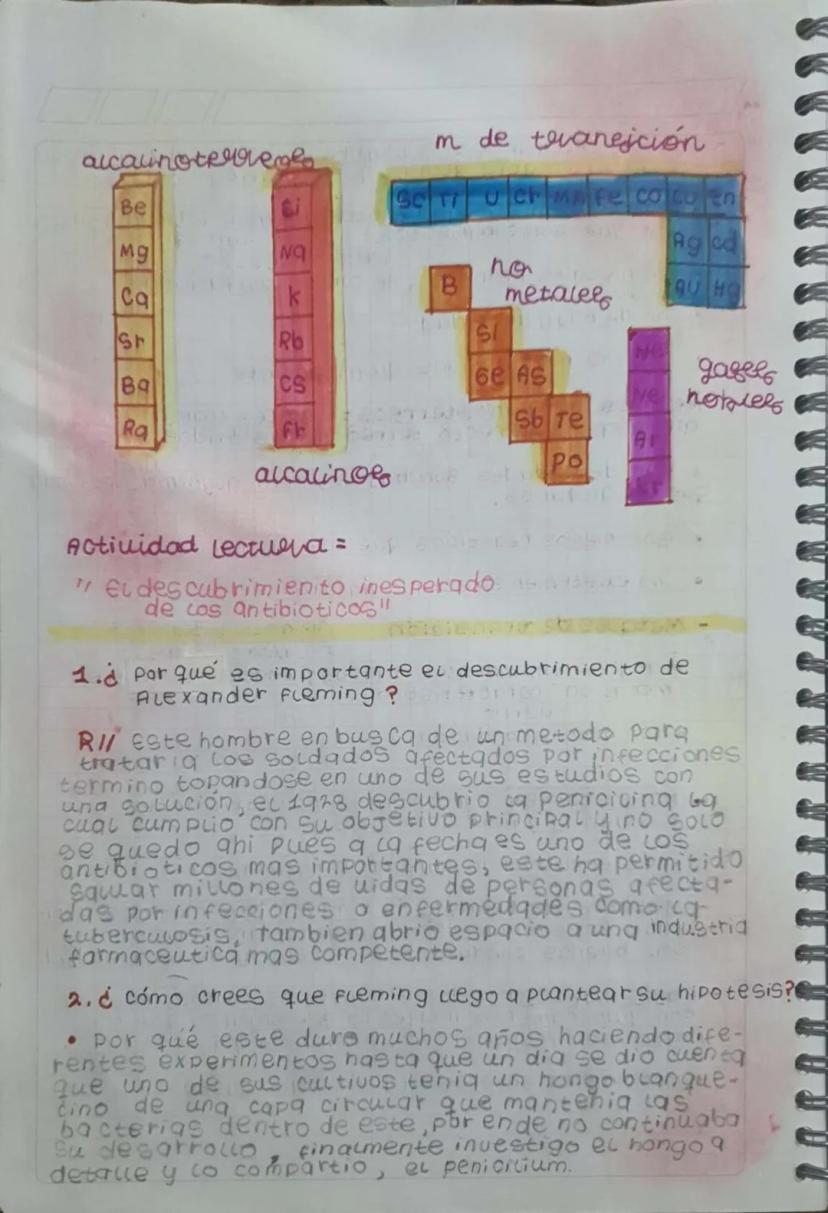 alcalinoterreos
m de transición
Be
Mg
Ca
Sr
Ba
Ra
Li
Na
K
Rb
Cs
Fr
alcalinos
Sc Ti V Cr Mn Fe Co Cu Zn
Ag Cd
Au Hg
no
metales
B
Si
Ge As
Sb Te
Po
Ne
Ar
Kr
gases
nobles
Actividad Lectura =
"El descubrimiento inesperado
de los antibioticos"
1. ¿ Por qué es importante el descubrimiento de
Alexander Fleming?
R// Este hombre en busca de un metodo para
tratar a los soldados afectados por infecciones
termino topandose en uno de sus estudios con
una solución, el 1928 descubrio la penicilina la
cual cumplio con su objetivo principal y no solo
se quedo ahi pues a la fecha es uno de los
antibioticos mas importantes, este ha permitido
salvar millones de vidas de personas afecta-
das por infecciones o enfermedades como la
tuberculosis, tambien abrio espacio a una industria
farmaceutica mas competente.
2. ¿ cómo crees que Fleming llego a plantear su hipotesis?
• Por qué este duro muchos años haciendo dife-
rentes experimentos hasta que un dia se dio cuenta
que uno de sus cultivos tenia un hongo blanque-
cino de una capa circular que mantenia las
bacterias dentro de este, por ende no continuaba
su desarrollo, finalmente investigo el hongo a
detalle y lo compartio, el penicilium.